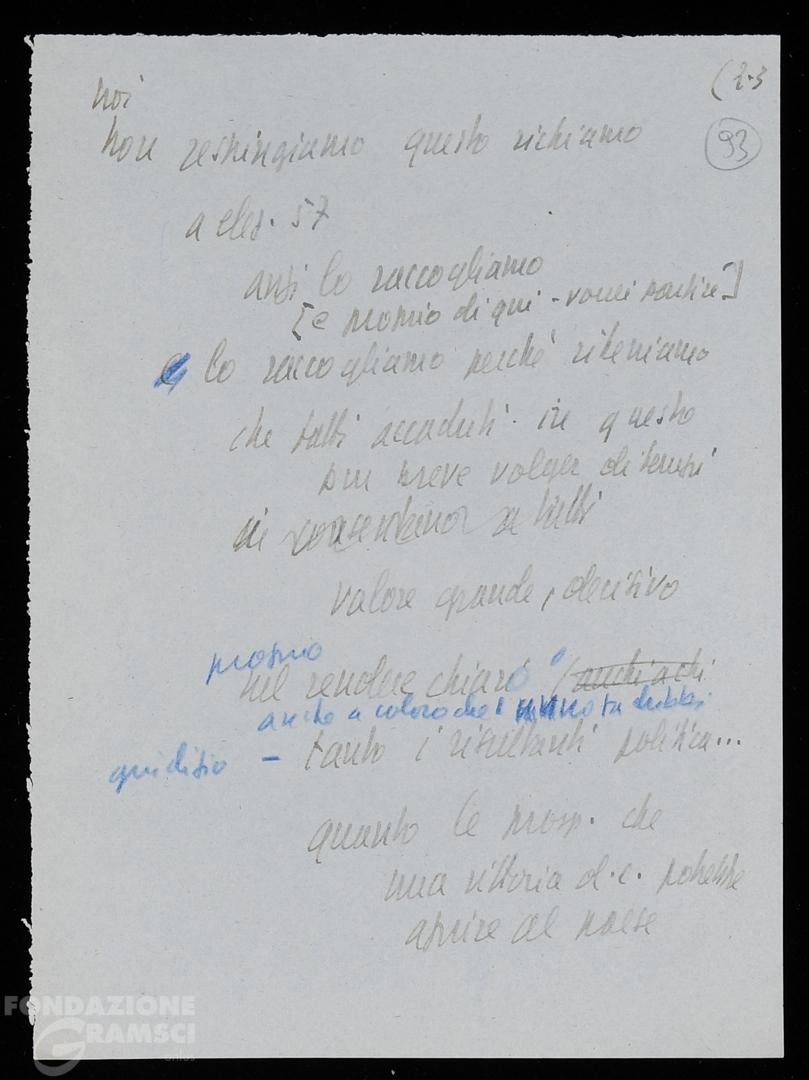 (2-3
93
noi
non respingiamo questo richiamo
a eles. 57
anzi lo raccogliamo
[e proprio di qui - vorrei partire]
lo raccogliamo perché riteniamo
che fatti accaduti in questo
pur breve volger di tempi
valore grande, decisivo
proprio
nel rendere chiaro (anche a chi
anche a coloro che dubbi
giudizio - tanto i risultati politica...
quanto le prosp. che
una vittoria d.c. potrebbe
aprire al paese
FONDAZIONE
GRAMSCI
onlus